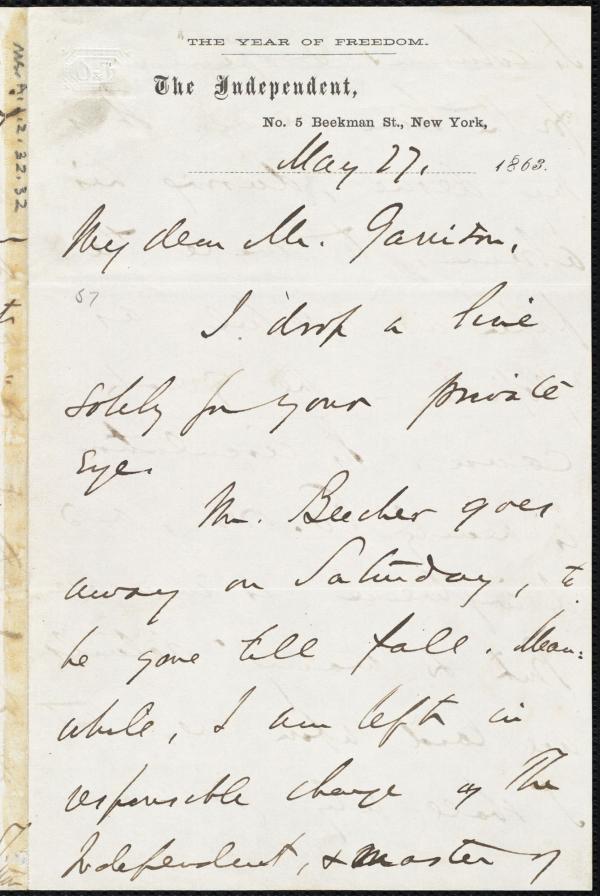 THE YEAR OF FREEDOM.
The Independent,
No. 5 Beekman St., New York,
May 27, 1863.
Ms. A. 1. 2. 32. 32
My dear Mr. Garrison,
57
I drop a line
solely for your private
eye.
Mr. Beecher goes
away on Saturday, to
be gone till fall. Mean=
while, I am left in
responsible charge of The
Independent, & master of